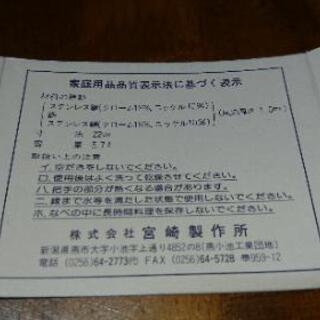 家庭用品品質表示法に基づく表示
ステンレス鋼(クローム18%、ニッケル
鉄
ステンレス鋼(クローム18%、ニッケル
寸 法 22㎝
容 量 5.7ℓ
取扱い上の注意
イ.空だきをしないでください。
ロ.使用後はよく洗って乾燥させて下さい。
ハ.把手の部分が熱くなる場合があります。
ニ.縁まで水等を満たした状態で使用しないでください。
ホ.なべの中に長時間料理を保存しないでください。
株式会社 宮崎製作所
新潟県燕市大字小池字上通り4852の8(燕小池工業団地)
電話 (0256)64-2773㈹ FAX (0256)64-5728 〠959-12